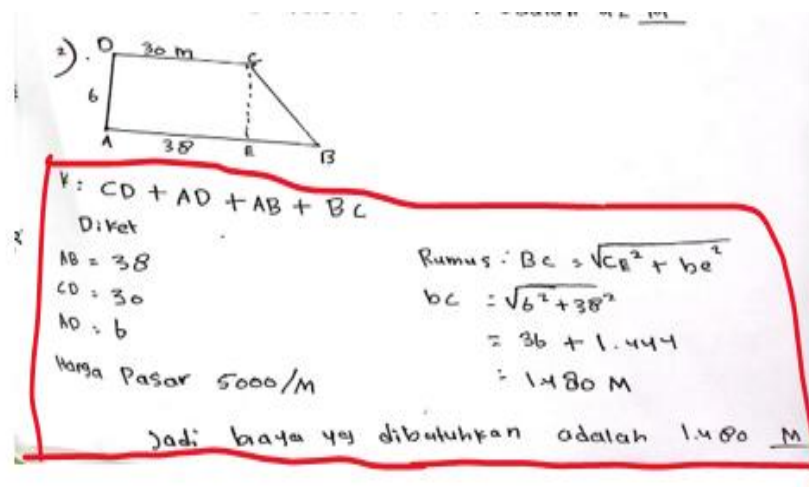 2).
D 30 m C
6
A 38 E B
K: CD + AD + AB + BC
Diket
AB = 38
CD = 30
AD = 6
Harga Pasar 5000/M
Rumus: BC = √CE² + be²
bc = √6² + 38²
= 36 + 1.444
= 1.480 M
Jadi biaya yg dibutuhkan adalah 1.480 M